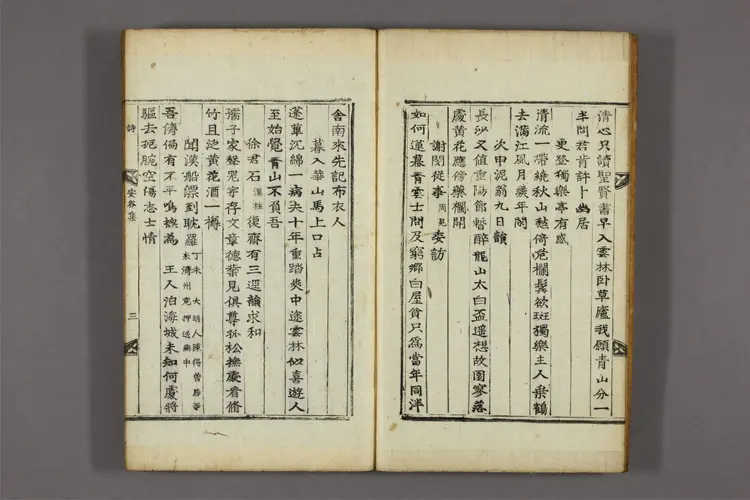 清心只讀聖賢書早入雲林卧草廬我願青山分一
半問君肯許卜幽居
更登獨樂亭有感
清流一帶繞秋山愁倚危欄鬂欲斑獨樂主人乗鶴
去滿江風月幾年閑
次申泥翁九日韻
長沙又値重陽節暫醉龍山太白盃遥想故園寥落
處黄花應傍藥欄開
謝閔從事周見委訪
如何蓬蓽青雲士問及窮鄉白屋貧只爲當年同泮
舍南來先記布衣人
暮入華山馬上口占
蓬蓽沉綿一病夫十年重踏炎中途雲林似喜遊人
至始覺青山不負吾
徐君石漢柱復齋有三逕韻求和
孺子家聲宛宇存文章德業見俱尊孤松撫處看脩
竹且泛黄花酒一樽
聞漢船漂到耽羅丁未大明人陳得曽勝等
来濟州克押送燕中
吾儕偏有不平鳴挨為王人泊海城未知何處將
驅去扼腕空傷志士情
詩
安谷集
三